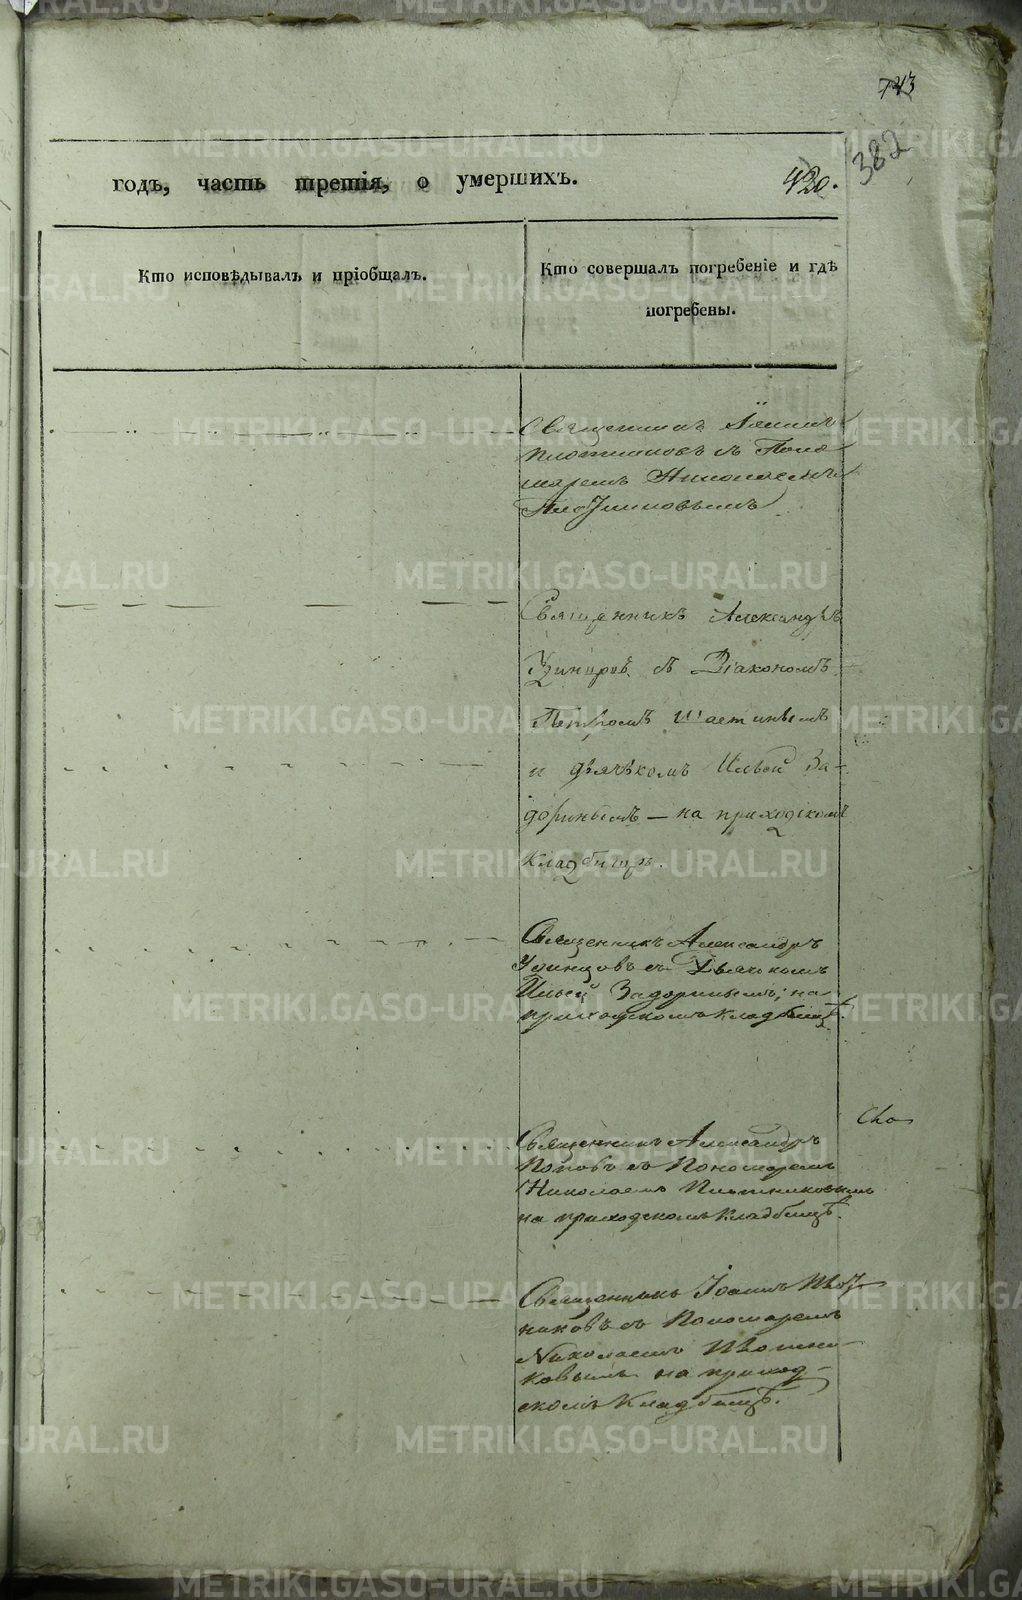 743
382
годъ, часть третія, о умершихъ.
420.
Кто исповѣдывалъ и пріобщалъ.
Кто совершалъ погребеніе и гдѣ
погребены.
Священникъ Іоаннъ
Плотниковъ съ Поно
маремъ Николаемъ
Плотниковымъ
Священникъ Александръ
Удинцовъ съ Діакономъ
Петромъ
и дьячкомъ Ильей За-
доринымъ – на приходскомъ
кладбищѣ.
Священникъ Александръ
Удинцовъ съ Дьячкомъ
Ильей Задоринымъ; на
приходскомъ кладбищѣ.
Священникъ Александръ
Поповъ съ Пономаремъ
Николаемъ Плотниковымъ
на приходскомъ кладбищѣ.
Священникъ Іоаннъ Плот
никовъ съ Пономаремъ
Николаемъ Плотни-
ковымъ на приход-
скомъ кладбищѣ.
METRIKI.GASO-URAL.RU